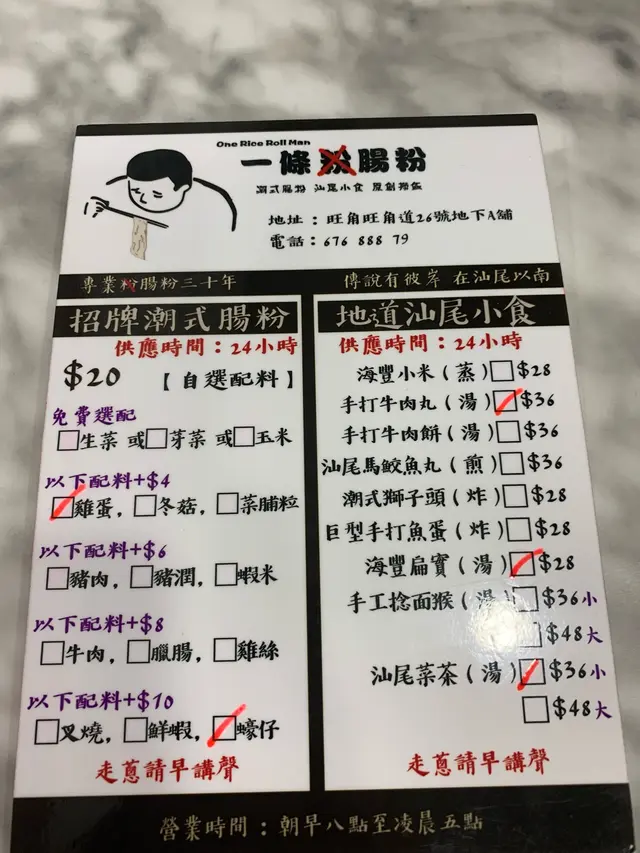 One Rice Roll Man
一條粉腸粉
潮式腸粉 汕尾小食
地址：旺角旺角道26號地下A舖
電話：676 888 79
專業粉腸粉三十年
傳說有彼岸 在汕尾以南
招牌潮式腸粉
供應時間：24小時
$20 【自選配料】
免費選配
生菜 或 芽菜 或 玉米
以下配料+$4
雞蛋, 冬菇, 菜脯粒
以下配料+$6
豬肉, 豬潤, 蝦米
以下配料+$8
牛肉, 臘腸, 雞絲
以下配料+$10
叉燒, 鮮蝦, 蠔仔
走蔥請早講聲
地道汕尾小食
供應時間：24小時
海豐小米（蒸） $28
手打牛肉丸（湯） $36
手打牛肉餅（湯） $36
汕尾馬鮫魚丸（煎） $36
潮式獅子頭（炸） $28
巨型手打魚蛋（炸） $28
海豐扁實（湯） $28
手工捻面猴（湯） $36小
$48大
汕尾菜茶（湯） $36小
$48大
走蔥請早講聲
營業時間：朝早八點至凌晨五點